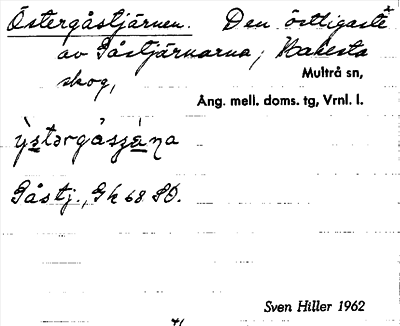 Östergåstjärnen. Den östligaste
av Gåstjärnarna, Hakesta
skog,
Multrå sn,
Ång. mell. doms. tg, Vrnl. l.
Gåstj., Gk 68 SO.
Sven Hiller 1962